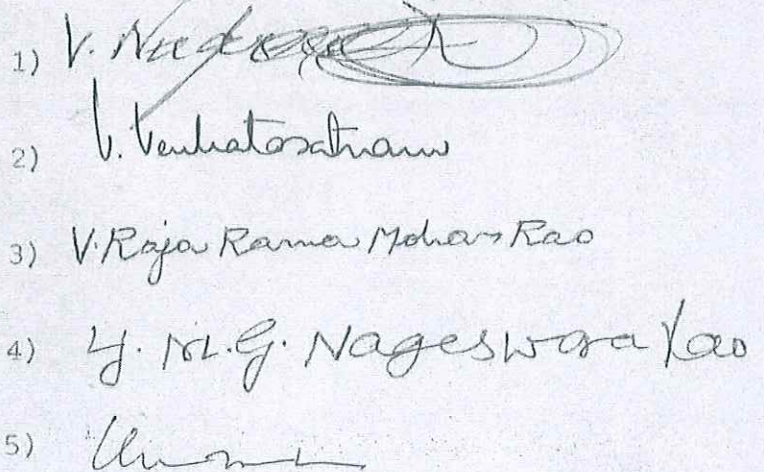 1) V.
2) V. Venkatasatnam
3) V. Raja Rama Mohan Rao
4) Y. M. G. Nageswara Rao
5)